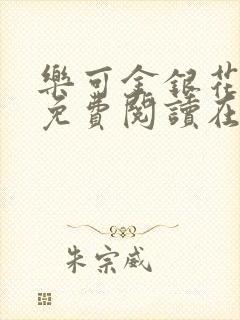 樂可金銀花
免費閱讀在
朱宗威